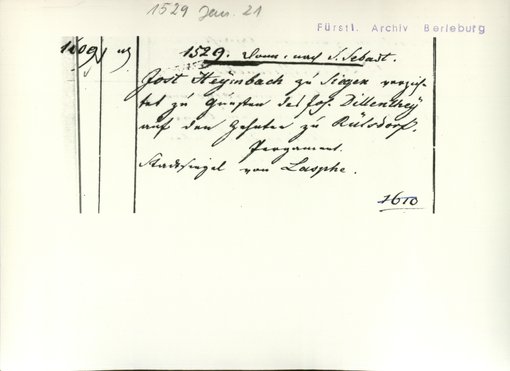 1529 Jan. 21
Fürstl. Archiv Berleburg
1529. Donn. nach S. Sebast.
Jost Heynsbach zu Siegen verzich-
tet zu Gunsten des Joh.
auf den Zehnten zu Rülsdorf.
Pergament.
Stadtsiegel von Laasphe.
1610